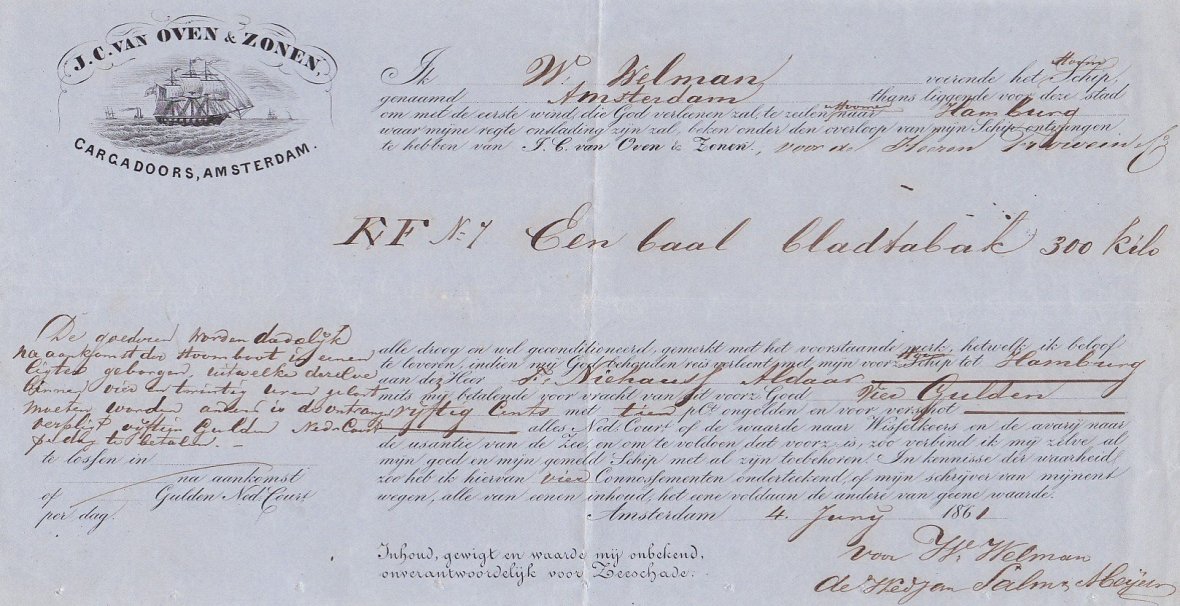 J. C. VAN OVEN & ZONEN,
CARGADOORS, AMSTERDAM.
Ik W. Welman voerende het Stoom Schip,
genaamd Amsterdam thans liggende voor deze stad
om met de eerste wind, die God verleenen zal, te zeilen stoomen naar Hamburg
waar mijne regte ontlading zijn zal, beken onder den overloop van mijn Schip ontvangen
te hebben van J. C. van Oven & Zonen, voor de Heeren
F No 7 Een baal bladtabak 300 kilo
De goederen worden dadelijk
na aankomst der stoomboot in eenen
ligter geborgen, uit welke dezelve
binnen vier en twintig uren gelost
moeten worden anders is de ontvang
verpligt vijftien Gulden Ned. Court
per dag te betalen. –
te lossen in
na aankomst
of Gulden Ned. Court
per dag.
alle droog en wel geconditioneerd, gemerkt met het voorstaande merk, hetwelk ik beloof
te leveren, indien mij God behouden reis verleent met mijn voorz. Schip tot Hamburg
aan den Heer Fr. Niehauss Aldaar
mits mij betalende voor vracht van dit voorz. Goed Vier Gulden
vijftig Cents met tien pCt. ongelden en voor verschot
alles Ned. Court of de waarde naar Wisselkoers en de avarij naar
de usantie van de Zee, en om te voldoen dat voorz. is, zoo verbind ik mij zelve al
mijn goed en mijn gemeld Schip met al zijn toebehoren. In kennisse der waarheid,
zoo heb ik hiervan vier Connossementen onderteekend, of mijn schrijver van mijnent
wegen, alle van eenen inhoud, het eene voldaan de andere van geene waarde.
Amsterdam 4. Juny 1861
Inhoud, gewigt en waarde mij onbekend,
onverantwoordelijk voor Zeeschade.
voor W. Welman
de Wed Jan Salm & Meijer